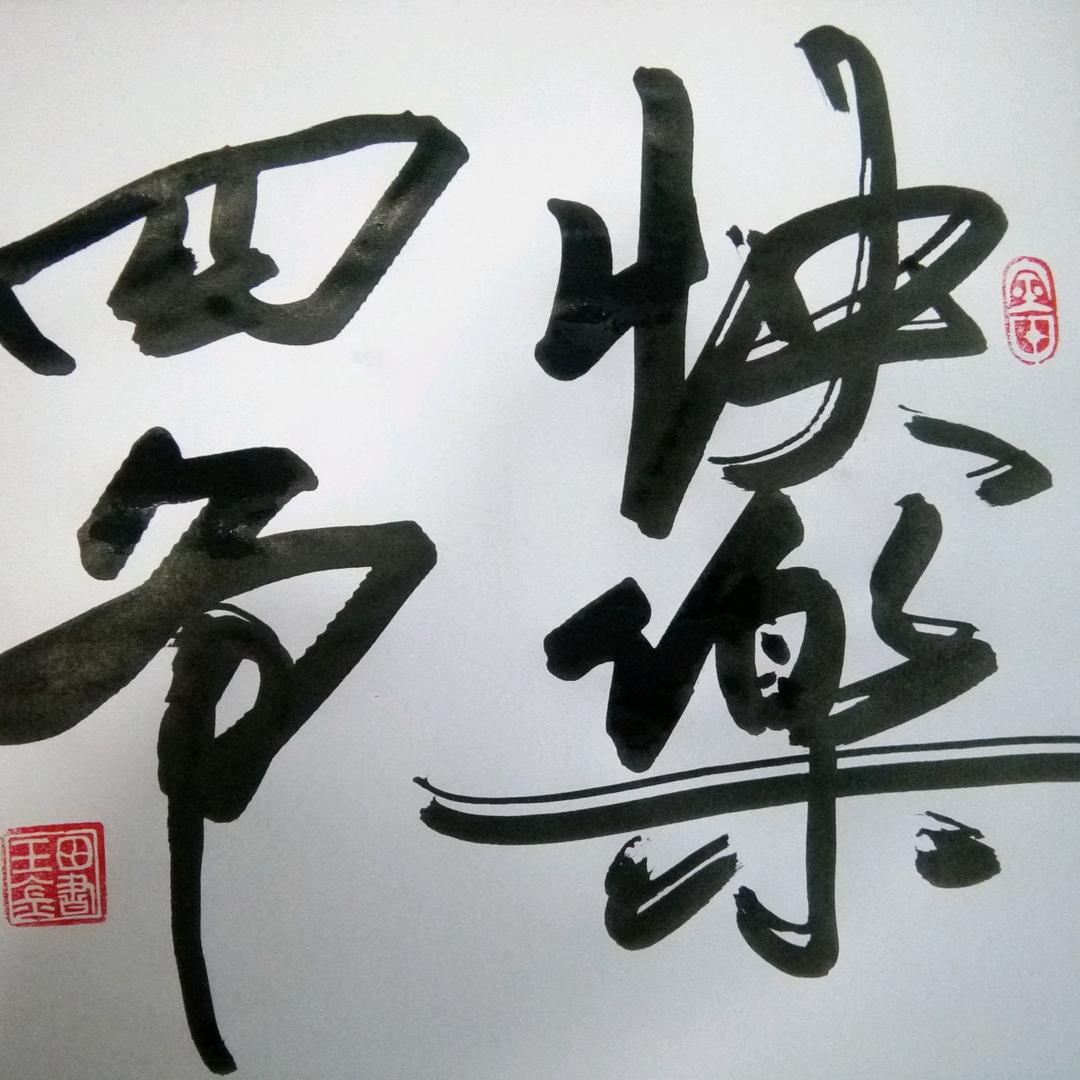 快樂
四
田書
王金